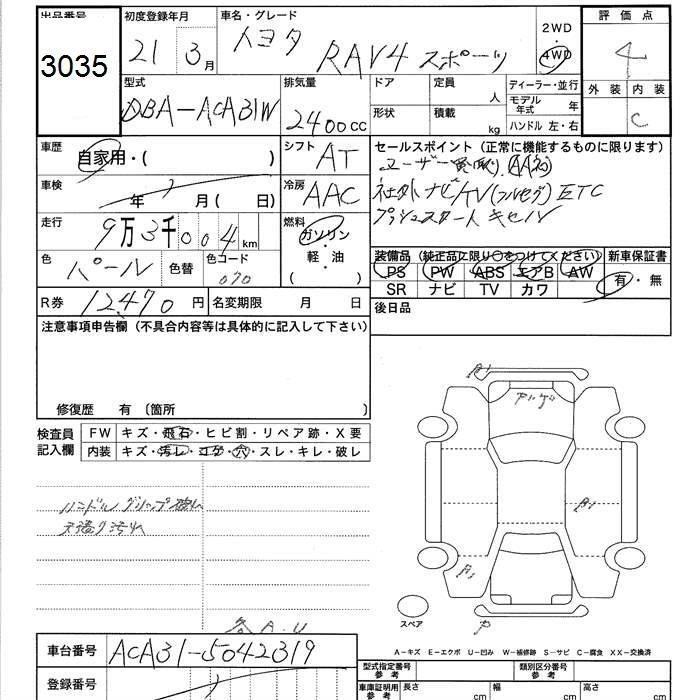 出品番号 初度登録年月 車名・グレード 2WD 評価点
3035 21 3月 トヨタ RAV4 スポーツ ・4WD 4
型式 排気量 ドア 定員 人 ディーラー・並行 外装 内装
DBA-ACA31W 2400cc 形状 積載 kg モデル年式 年 C
ハンドル 左・右
車歴 自家用・( ) シフト AT セールスポイント(正常に機能するものに限ります)
ユーザー買取り、
車検 年 月(日) 冷房 AAC 社外ナビ/TV(フルセグ) ETC
走行 9万3千004km 燃料 ガソリン・軽・油 ( ) プッシュスタート
色 パール 色替 色コード 070 装備品(純正品に限り○をつけてください) 新車保証書
PS PW ABS エアB AW 有・無
SR ナビ TV カワ
R券 12,470円 名変期限 月 日 後日品
注意事項申告欄(不具合内容等は具体的に記入して下さい)
修復歴 有〔箇所 〕
検査員記入欄 FW キズ・飛石・ヒビ割・リペア跡・X要
内装 キズ・汚レ・コゲ・穴・スレ・キレ・破レ
ハンドルグリップ破れ
天張り汚れ
各A.U
スペア
A-キズ E-エクボ U-凹み W-補修跡 S-サビ C-腐食 XX-交換済
車台番号 ACA31-5042319 型式指定番号 参考 類別区分番号 参考
登録番号 車庫証明用 参考 長さ cm 幅 cm 高さ cm